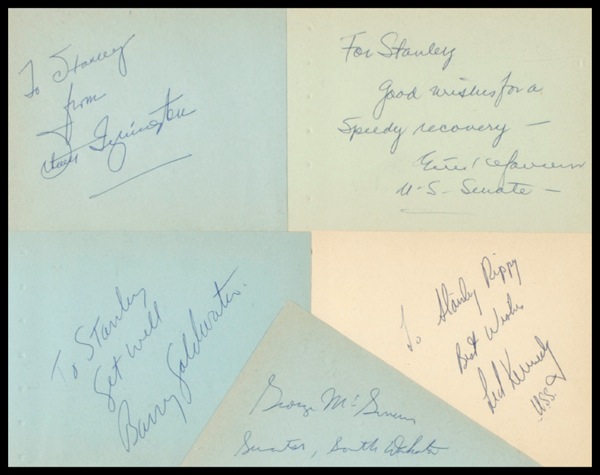 To Stanley
from
Stuart Symington
For Stanley
Good wishes for a
Speedy recovery —
Estes Kefauver
U-S- Senate —
To Stanley
Get well
Barry Goldwater.
To Stanley Rippy
Best Wishes
Ted Kennedy
USS
George McGovern
Senator, South Dakota